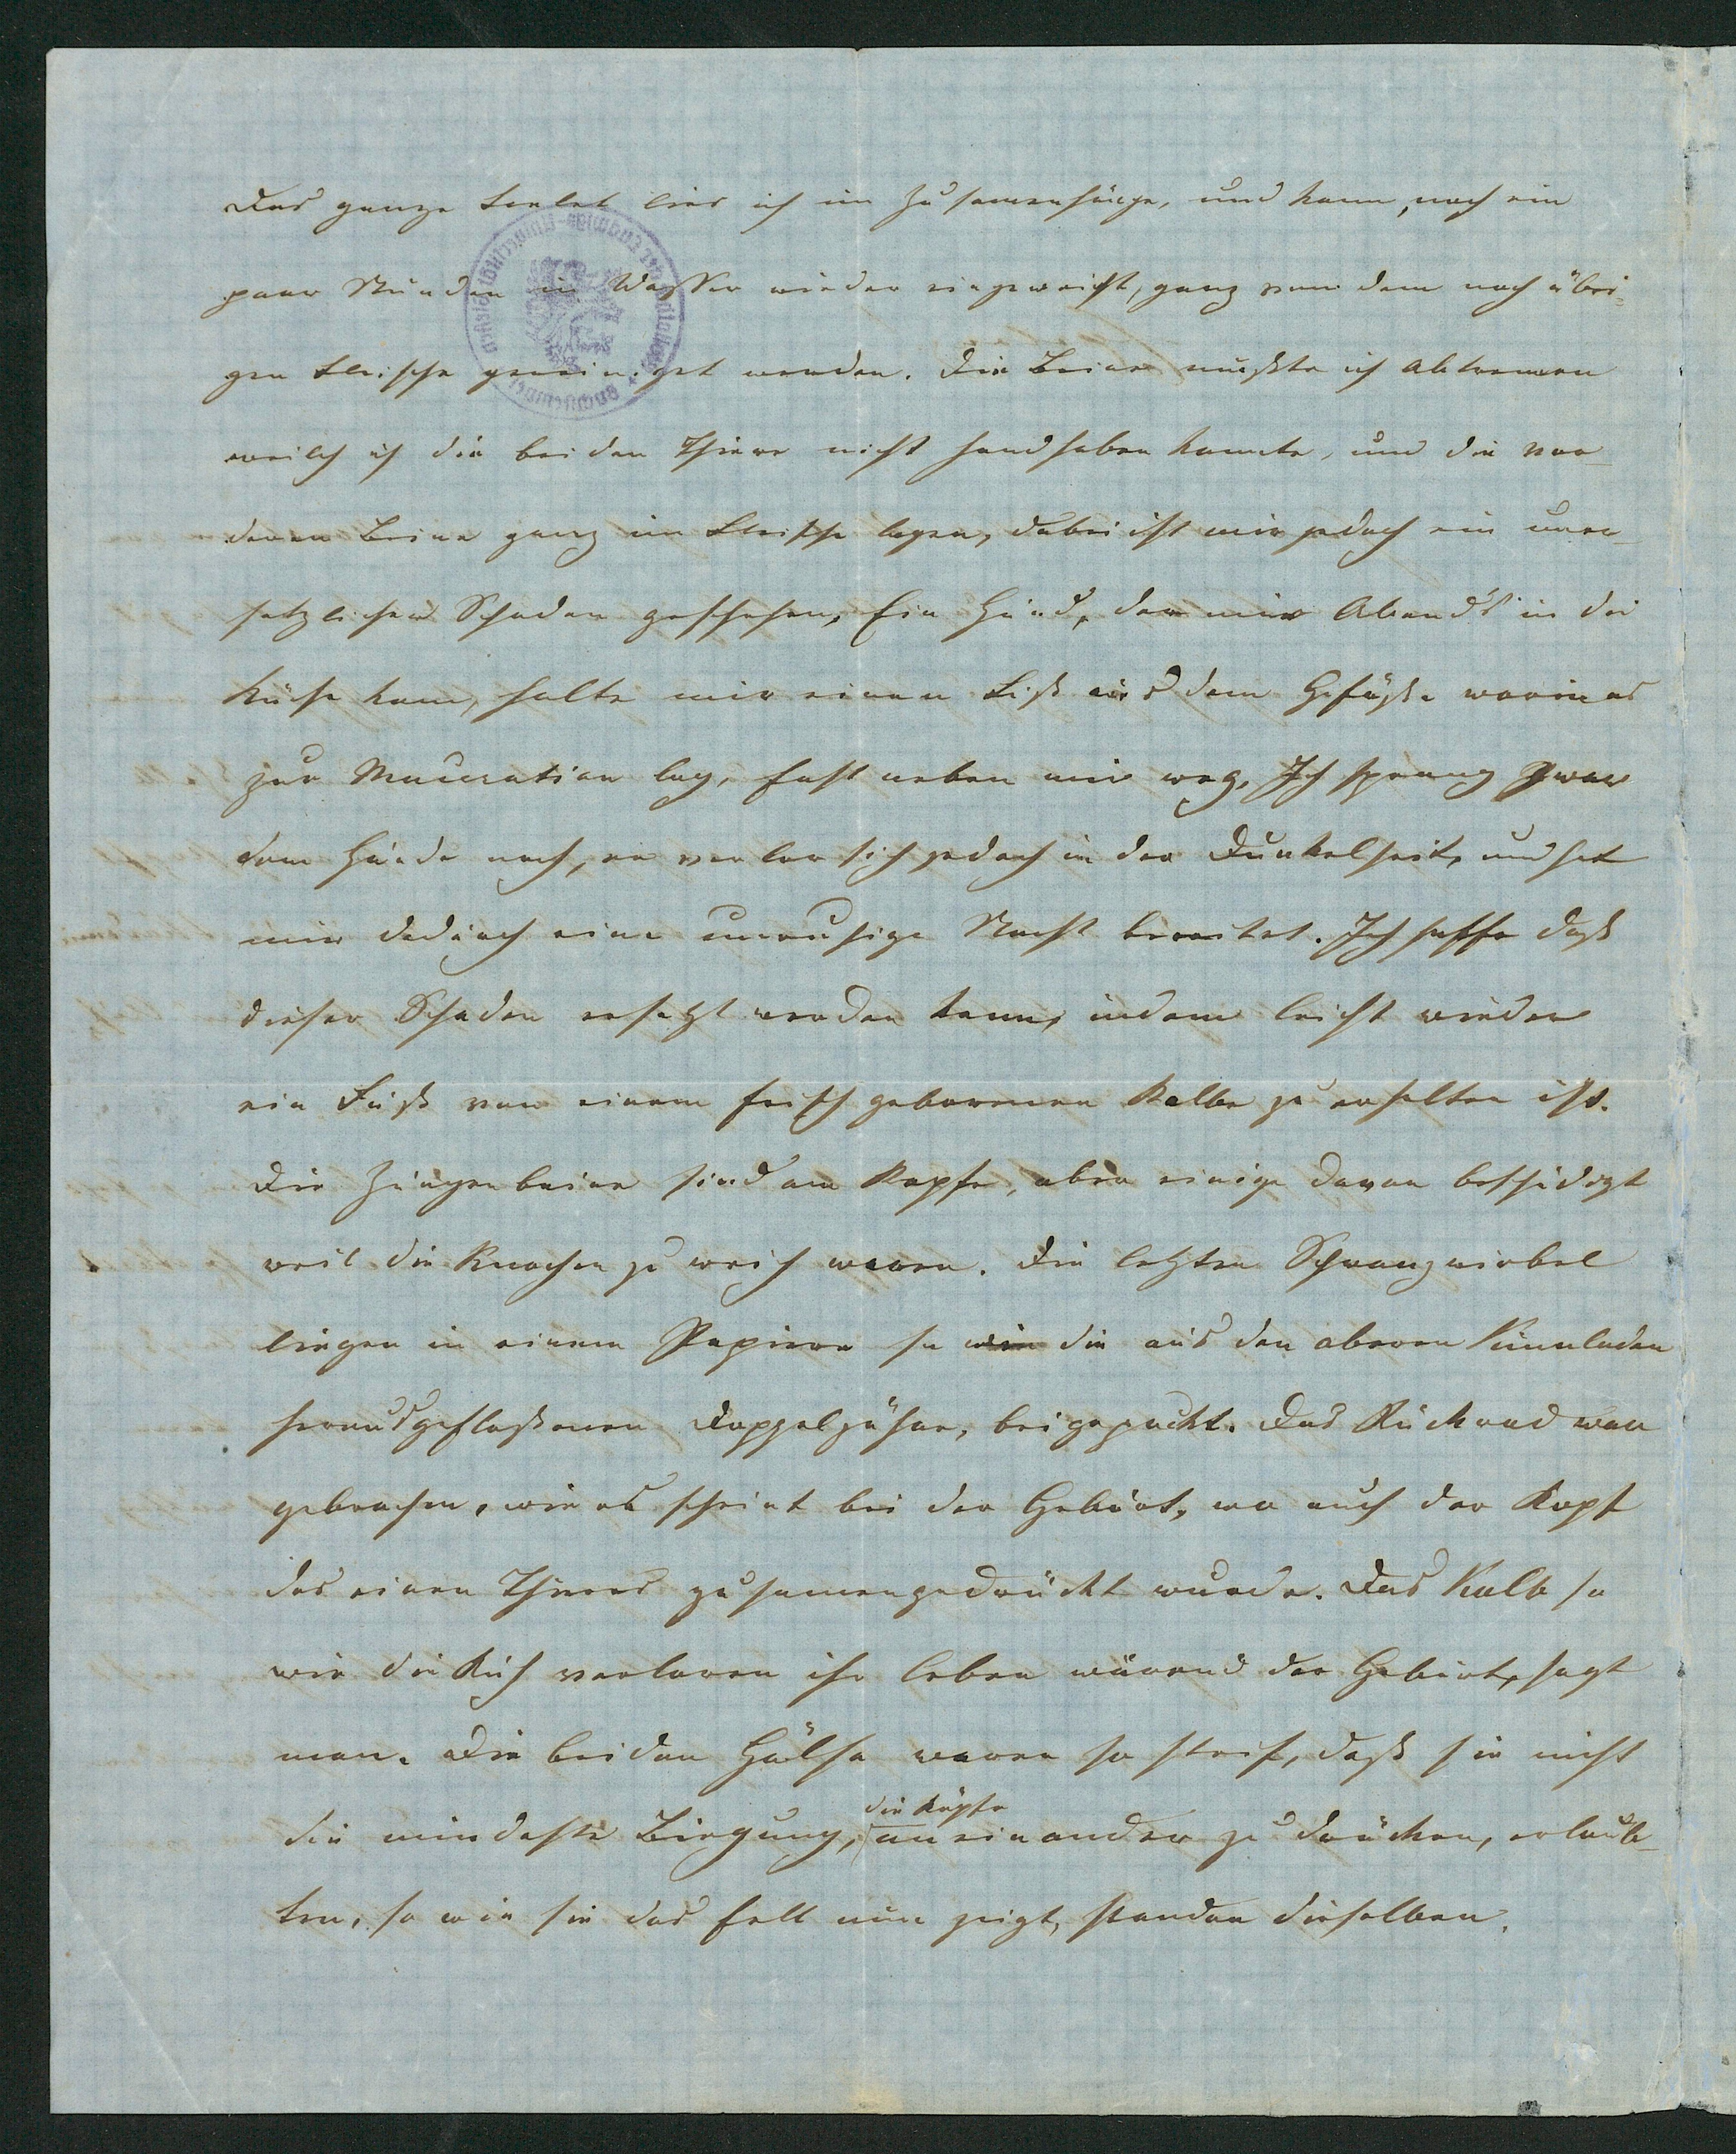 Das ganze Scelet lies ich im Zusamenhange, und kann, nach ein
paar Stunden in Wasser wieder eingeweicht, ganz vom dem noch übri-
gen Fleische gereiniget werden. Die Beine mußte ich abtrennen
weilch ich die beiden Thiere nicht handhaben konnte, und die vor-
deren Beine ganz im Fleische lagen, dabei ist mir jedoch ein uner-
setzlicher Schaden geschehen, Ein Hund, der mir Abends in die
Küche kam, holte mir einen Fuß aus dem Gefäße worin es
zur Maceration lag, fast neben mir weg, Ich sprang zwar
dem Hunde nach, er verlor sich jedoch in der Dunkelheit, und hat
mir dadurch eine unruhige Nacht bereitet. Ich hoffe daß
dieser Schaden ersetzt werden kann, indem leicht wieder
ein Fuß von einem frisch geborenen Kalbe zu erhalten ist.
Die Zungenbeine sind am Kopfe, aber einige davon beschädigt
weil die Knochen zu weich waren. Die letzten Schwanzwirbel
liegen in einem Papiere so wie die aus den oberen Kinnladen
herausgefloßenen Doppelzähne, beigepackt. Das Rückrad war
gebrochen, wie es scheint bei der Geburt, wo auch der Kopf
des einen Thieres zusamengedrückt wurde. Das Kalb so
wie die Kuh verloren ihr Leben wärend der Geburt, sagt
man. Die beiden Hälse waren so steif, daß sie nicht
die Köpfe
die mindeste Biegung, aneinander zu drücken, erlaub-
ten, so wie sie das Fell nun zeigt, standen dieselben.